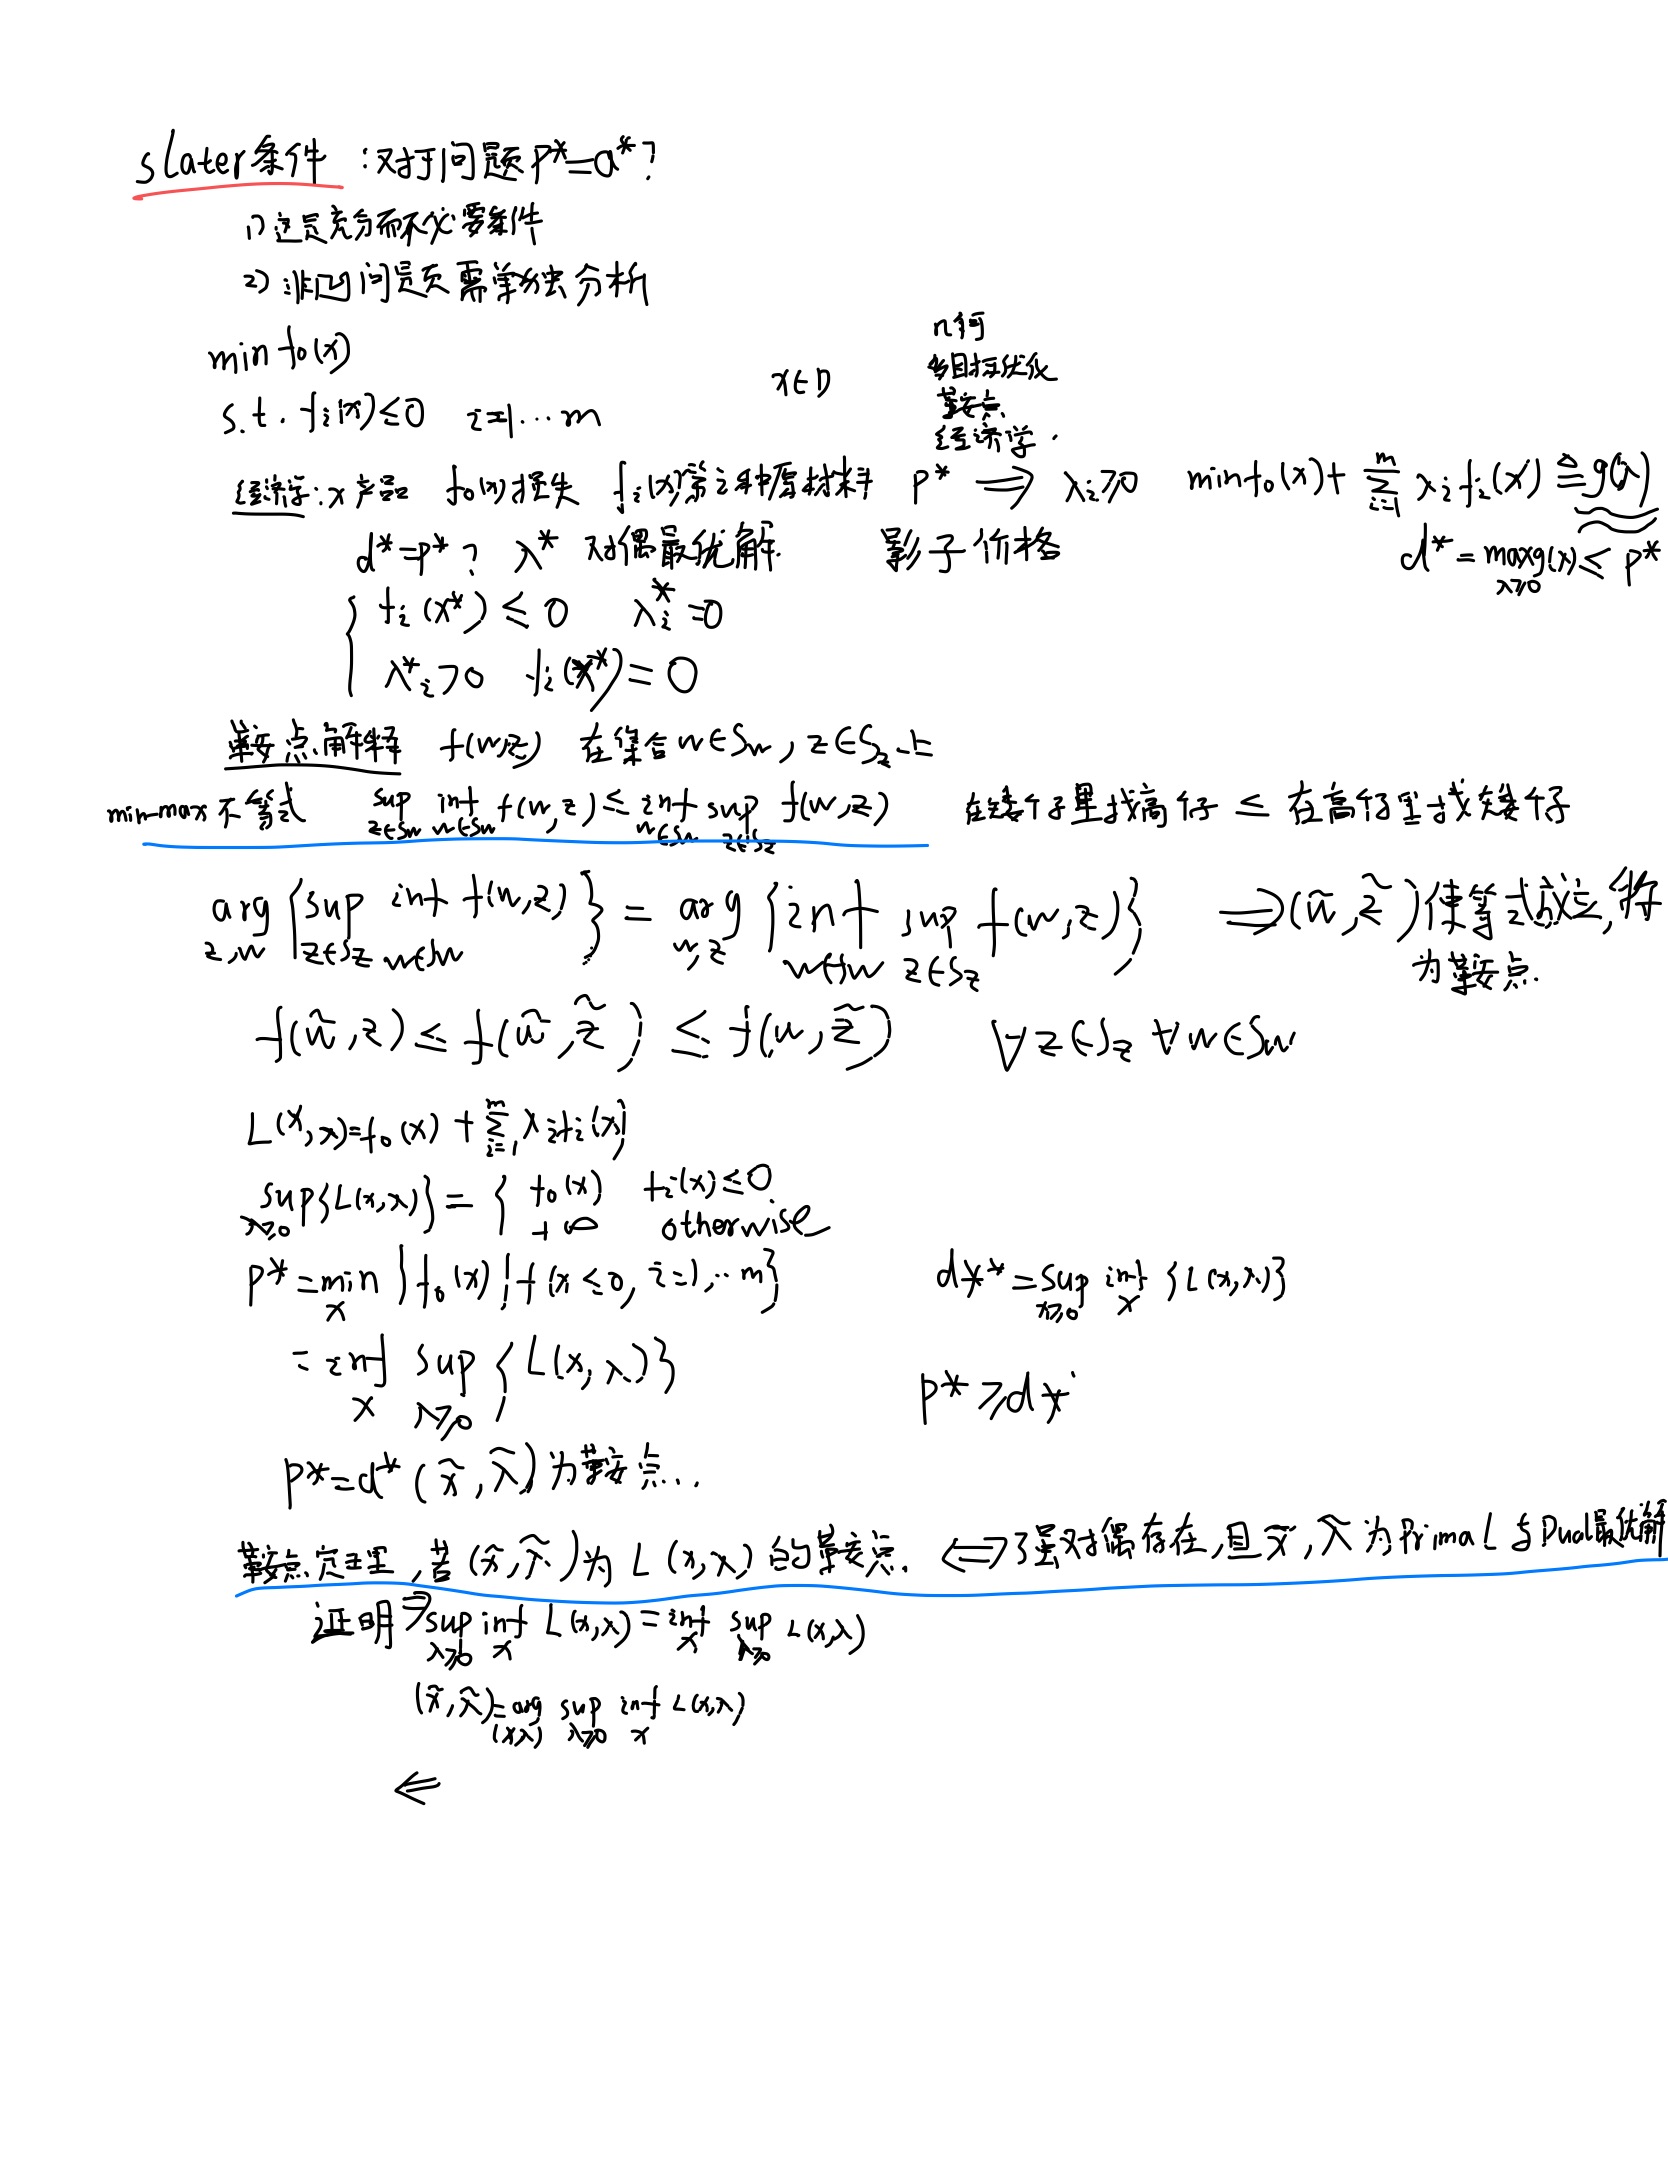 slater条件 : 对于问题 P*=d*?
1) 这是充分而不必要条件
2) 非凸问题需单独分析
min f₀(x)
s.t. fᵢ(x)≤0 i=1...m x∈D
几何
多目标优化
鞍点
经济学.
经济学: x产品 f₀(x)损失 fᵢ(x)第i种原材料 P* ⟹ λᵢ≥0 min f₀(x)+ Σᵢ₌₁ᵐ λᵢfᵢ(x) ≜ g(λ)
d*=P*? λ* 对偶最优解. 影子价格 d* = max_{λ≥0} g(λ) ≤ P*
{ fᵢ(x*) ≤ 0 λᵢ*=0
λ*ᵢ>0 fᵢ(x*)=0
鞍点解释 f(w,z) 在集合w∈S_w, z∈S_z上
min-max 不等式 sup_{z∈S_w} inf_{w∈S_w} f(w,z) ≤ inf_{w∈S_w} sup_{z∈S_z} f(w,z) 在矮个子里找高仔 ≤ 在高仔里找矮仔
arg_{z,w} {sup_{z∈S_z} inf_{w∈S_w} f(w,z)} = arg_{w,z} {inf_{w∈S_w} sup_{z∈S_z} f(w,z)} ⟹ (w̃,z̃)使等式成立,称
为鞍点.
f(w̃,z) ≤ f(w̃,z̃) ≤ f(w,z̃) ∀z∈S_z ∀w∈S_w
L(x,λ)=f₀(x)+Σᵢ₌₁ᵐ λᵢfᵢ(x)
sup_{λ≥0}{L(x,λ)} = { f₀(x) fᵢ(x)≤0
+∞ otherwise
P* = min_x {f₀(x) | fᵢ(x≤0, i=1,..m} d** = sup_{λ≥0} inf_x {L(x,λ)}
= inf_x sup_{λ≥0} {L(x,λ)} P* ≥ d*
P*=d* (x̃,λ̃)为鞍点...
鞍点定理, 若(x̃,λ̃)为L(x,λ)的鞍点. ⟺ 强对偶存在,且x̃,λ̃为Primal与Dual最优解
证明 ⇒ sup_{λ≥0} inf_x L(x,λ) = inf_x sup_{λ≥0} L(x,λ)
(x̃,λ̃)=arg_{(x,λ)} sup_{λ≥0} inf_x L(x,λ)
⇐